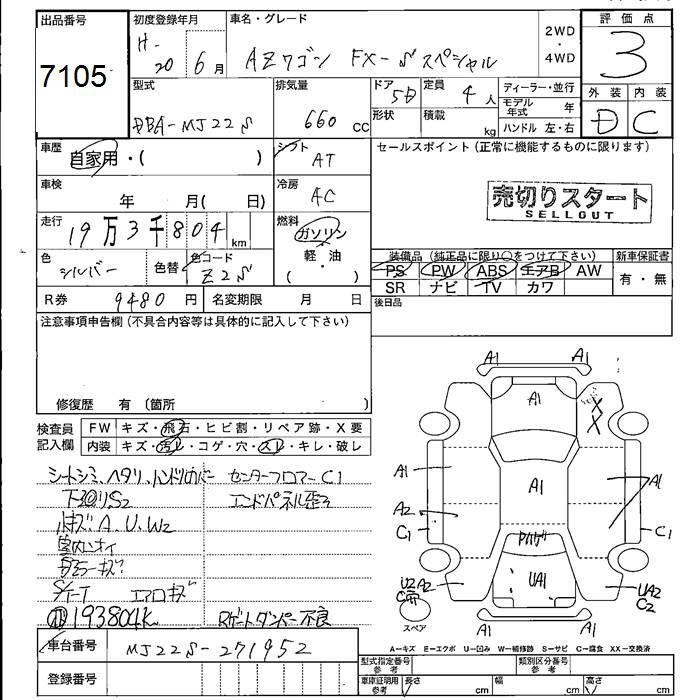 出品番号
7105
初度登録年月
H-20 6 月
車名・グレード
AZワゴン FX-Sスペシャル
2WD
・
4WD
評価点
3
外装 内装
D C
型式
DBA-MJ22S
排気量
660 cc
ドア
5D
形状
定員
4 人
積載
kg
ディーラー・並行
モデル年式 年
ハンドル 左・右
車歴
自家用・( )
シフト
AT
セールスポイント(正常に機能するものに限ります)
売切りスタート
SELLOUT
車検
年 月( 日)
冷房
AC
走行
19万3千804 km
燃料
ガソリン
・
軽・油
( )
色
シルバー
色替
色コード
Z2S
装備品(純正品に限り○をつけて下さい)
PS PW ABS エアB AW
SR ナビ TV カワ
新車保証書
有・無
R券 9480 円
名変期限 月 日
後日品
注意事項申告欄(不具合内容等は具体的に記入して下さい)
修復歴 有 〔箇所 〕
検査員
記入欄
FW キズ・飛石・ヒビ割・リペア跡・X要
内装 キズ・汚レ・コゲ・穴・スレ・キレ・破レ
シートシミ、ヘタリ、ハンドルカバー
センターフロアーC1
下回り、S2
エンドパネル歪ミ
キズ、A、U、W2
室内ニオイ
エアロキズ
193804K
Rゲートダンパー不良
車台番号 MJ22S-271952
登録番号
A1 A1
A1
X
X
A1
A1
A1
A2
C1
C1
UA1
U2 A2
UA2
C2
スペア
A1 A1
A-キズ E-エクボ U-凹み W-補修跡 S-サビ C-腐食 XX-交換済
型式指定番号
参考
類別区分番号
参考
車庫証明用
参考
長さ cm
幅 cm
高さ cm